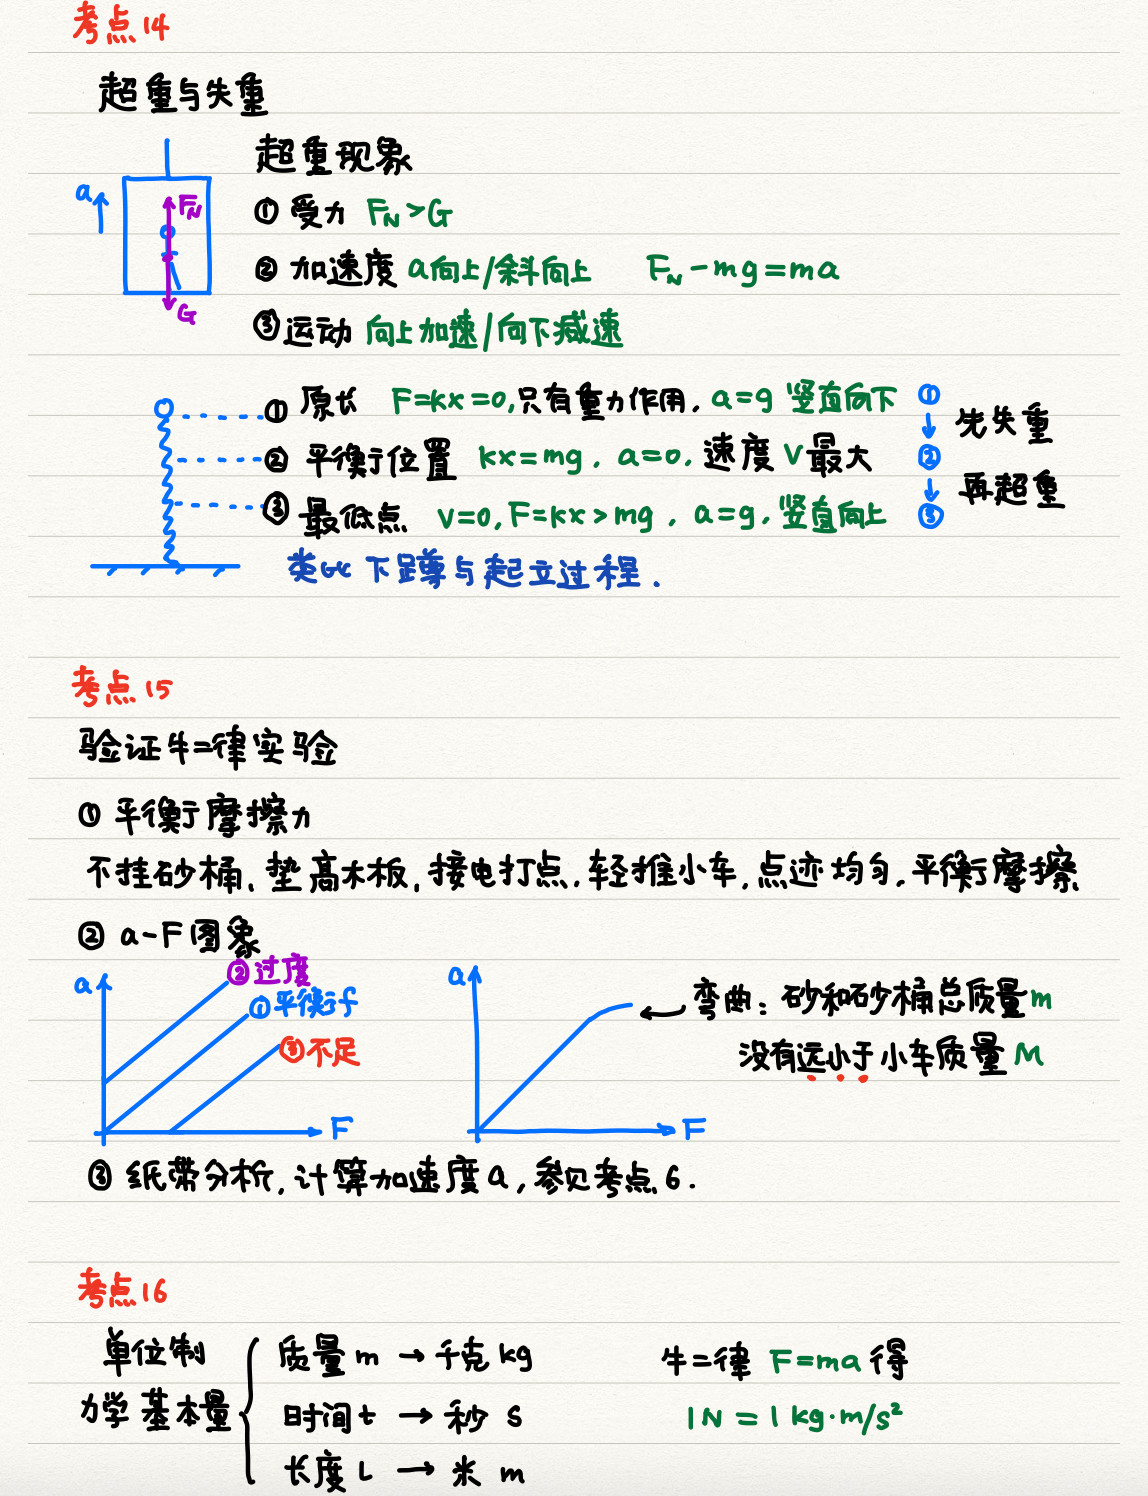 考点14
超重与失重
超重现象
a
F_N
G
① 受力 F_N>G
② 加速度 a向上/斜向上 F_N-mg=ma
③ 运动 向上加速/向下减速
① 原长 F=kx=0,只有重力作用, a=g 竖直向下
② 平衡位置 kx=mg, a=0, 速度V最大
③ 最低点 v=0, F=kx>mg, a=g, 竖直向上
①
先失重
②
再超重
③
类似下蹲与起立过程.
考点15
验证牛二律实验
① 平衡摩擦力
不挂砂桶、垫高木板,接电打点,轻推小车,点迹均匀,平衡摩擦
② a-F图象
a
②过度
①平衡f
③不足
F
a
F
弯曲: 砂和砂桶总质量m
没有远小于小车质量M
③ 纸带分析,计算加速度a,参见考点6.
考点16
单位制
力学基本量
质量m → 千克 kg
时间t → 秒 s
长度L → 米 m
牛二律 F=ma 得
1N = 1kg·m/s²